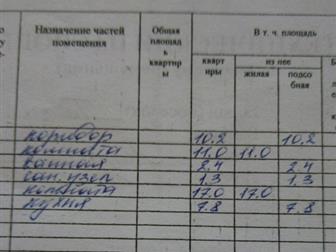 Назначение частей помещения
Общая площадь квартиры
В т. ч. площадь
квартиры
из нее
жилая
подсобная
коридор 10.2 10.2
комната 11.0 11.0
ванная 2,4 2,4
сан. узел 1,3 1,3
комната 17.0 17.0
кухня 7.8 7.8